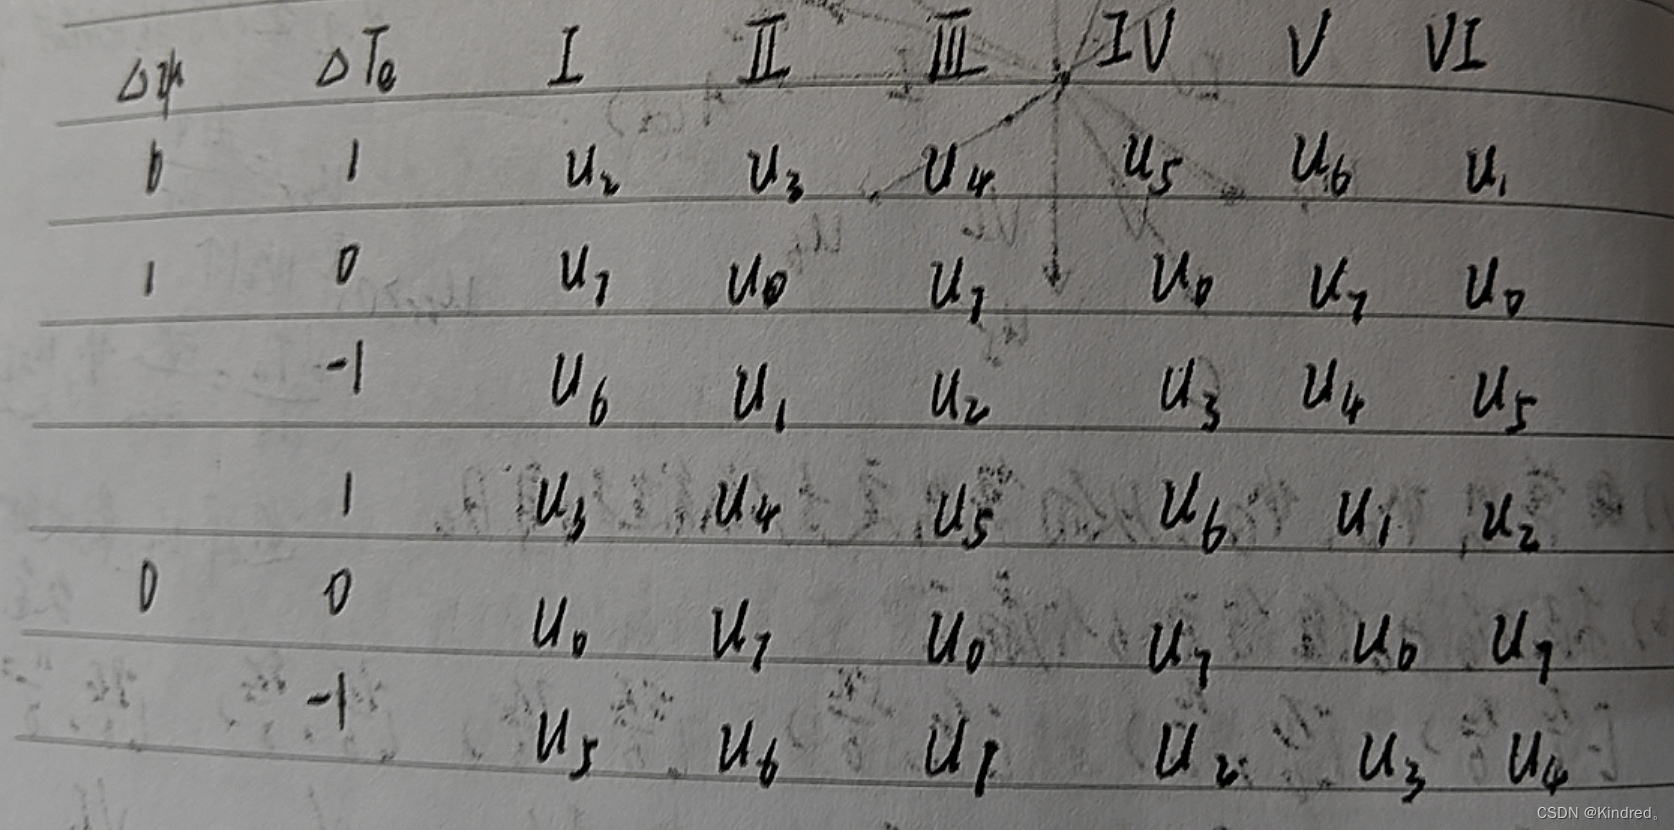 Δψ ΔTe I II III IV V VI
1 u₂ u₃ u₄ u₅ u₆ u₁
1 0 u₇ u₀ u₇ u₀ u₇ u₀
-1 u₆ u₁ u₂ u₃ u₄ u₅
1 u₃ u₄ u₅ u₆ u₁ u₂
0 0 u₀ u₇ u₀ u₇ u₀ u₇
-1 u₅ u₆ u₁ u₂ u₃ u₄
CSDN @Kindred。